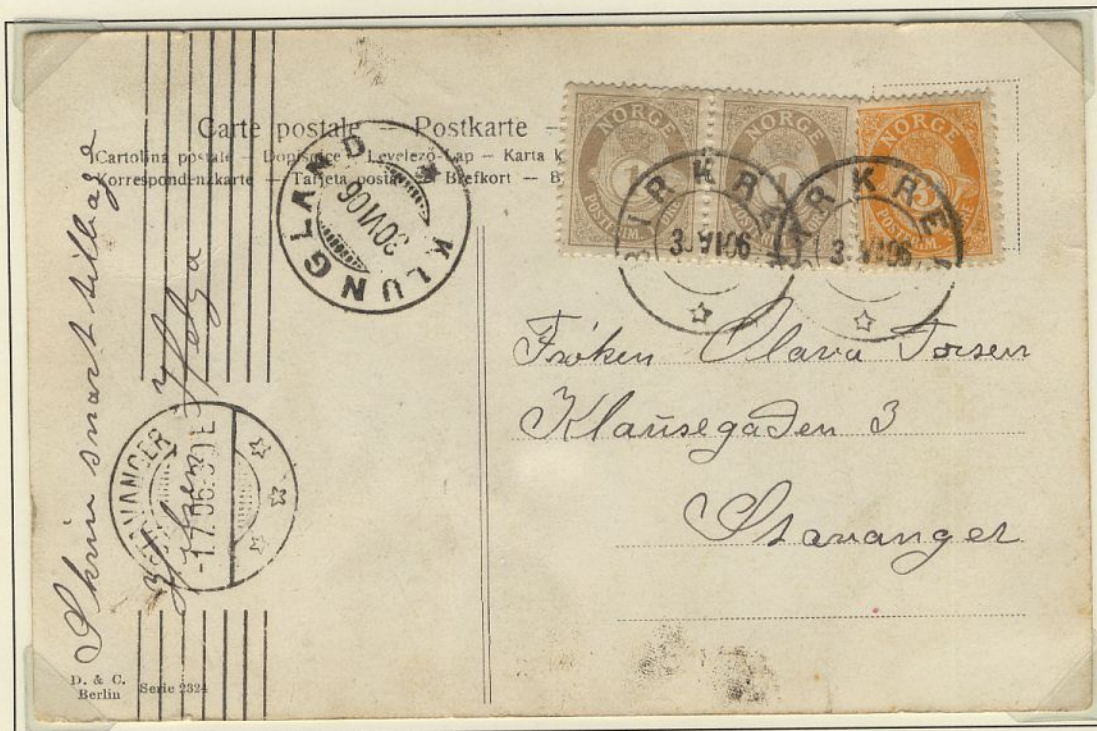 Carte postale — Postkarte —
Cartolina postale – Dopisnice – Levelező-Lap – Karta k
Korrespondenzkarte – Tarjeta postal – Brefkort – B
NORGE
1
POSTFRIM. ØRE
NORGE
1
POSTFRIM. ØRE
NORGE
3
POSTFRIM. ØRE
KLUNGLAND
30 VI 06
BIRKRE
3 VI 06
BIRKRE
3 VI 06
STAVANGER
-1.7.06.
Skriv snart tilbage
Hilsen Helga
Frøken Olava Torsen
Klausegaden 3
Stavanger
D. & C.
Berlin
Serie 2324